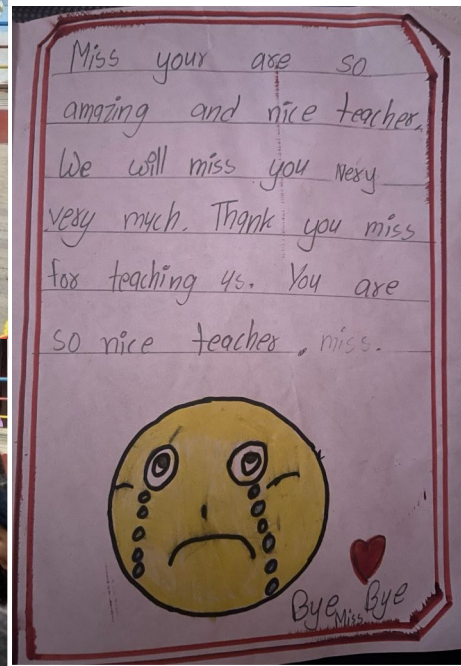 Miss your are so
amazing and nice teacher.
We will miss you Nexy
very much. Thank you miss
for teaching us. You are
so nice teacher, miss.
Bye Miss Bye